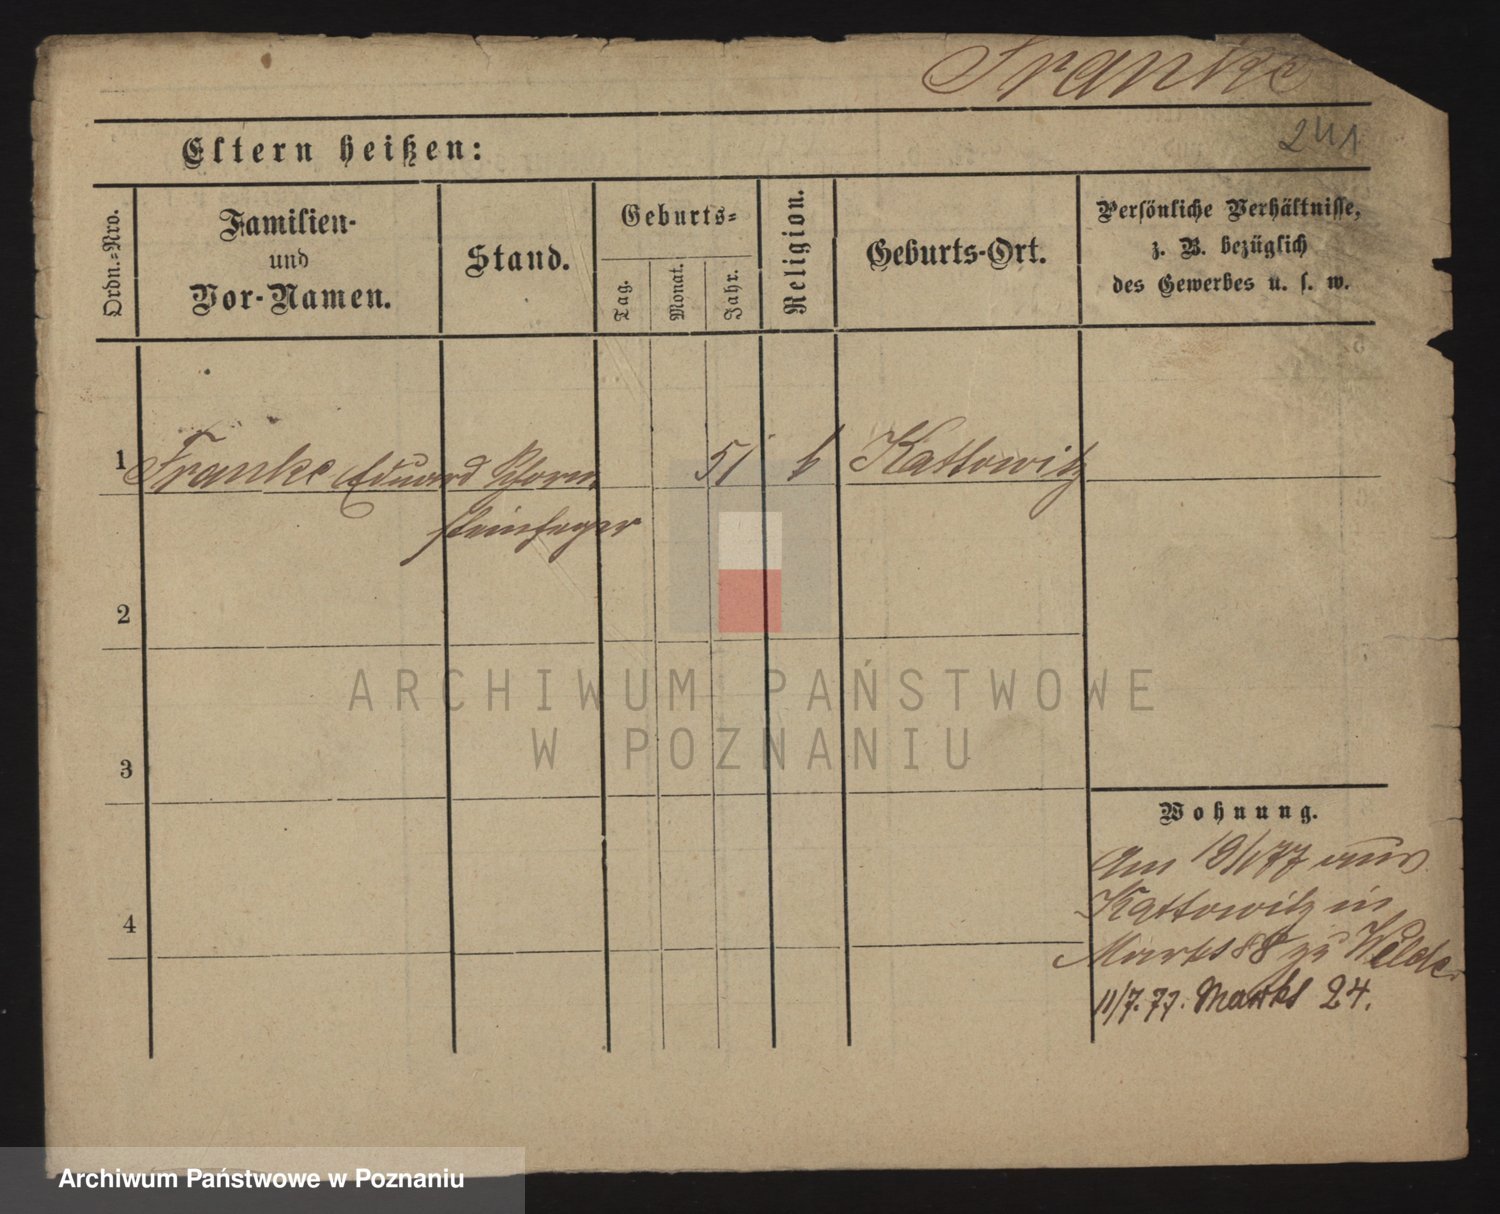 Franke
241
Eltern heißen:
Ordn.-Nro.
Familien-
und
Vor-Namen.
Stand.
Geburts-
Tag.
Monat.
Jahr.
Religion.
Geburts-Ort.
Persönliche Verhältnisse,
z. B. bezüglich
des Gewerbes u. s. w.
1 Franke Eduard Schorn 51 Kattowitz
steinfeger
2
3
4
Wohnung.
Am 19/1 77 aus
Kattowitz in
Markt 88 zu Welde
11/7. 77. Markt 24.
ARCHIWUM PAŃSTWOWE
W POZNANIU
Archiwum Państwowe w Poznaniu